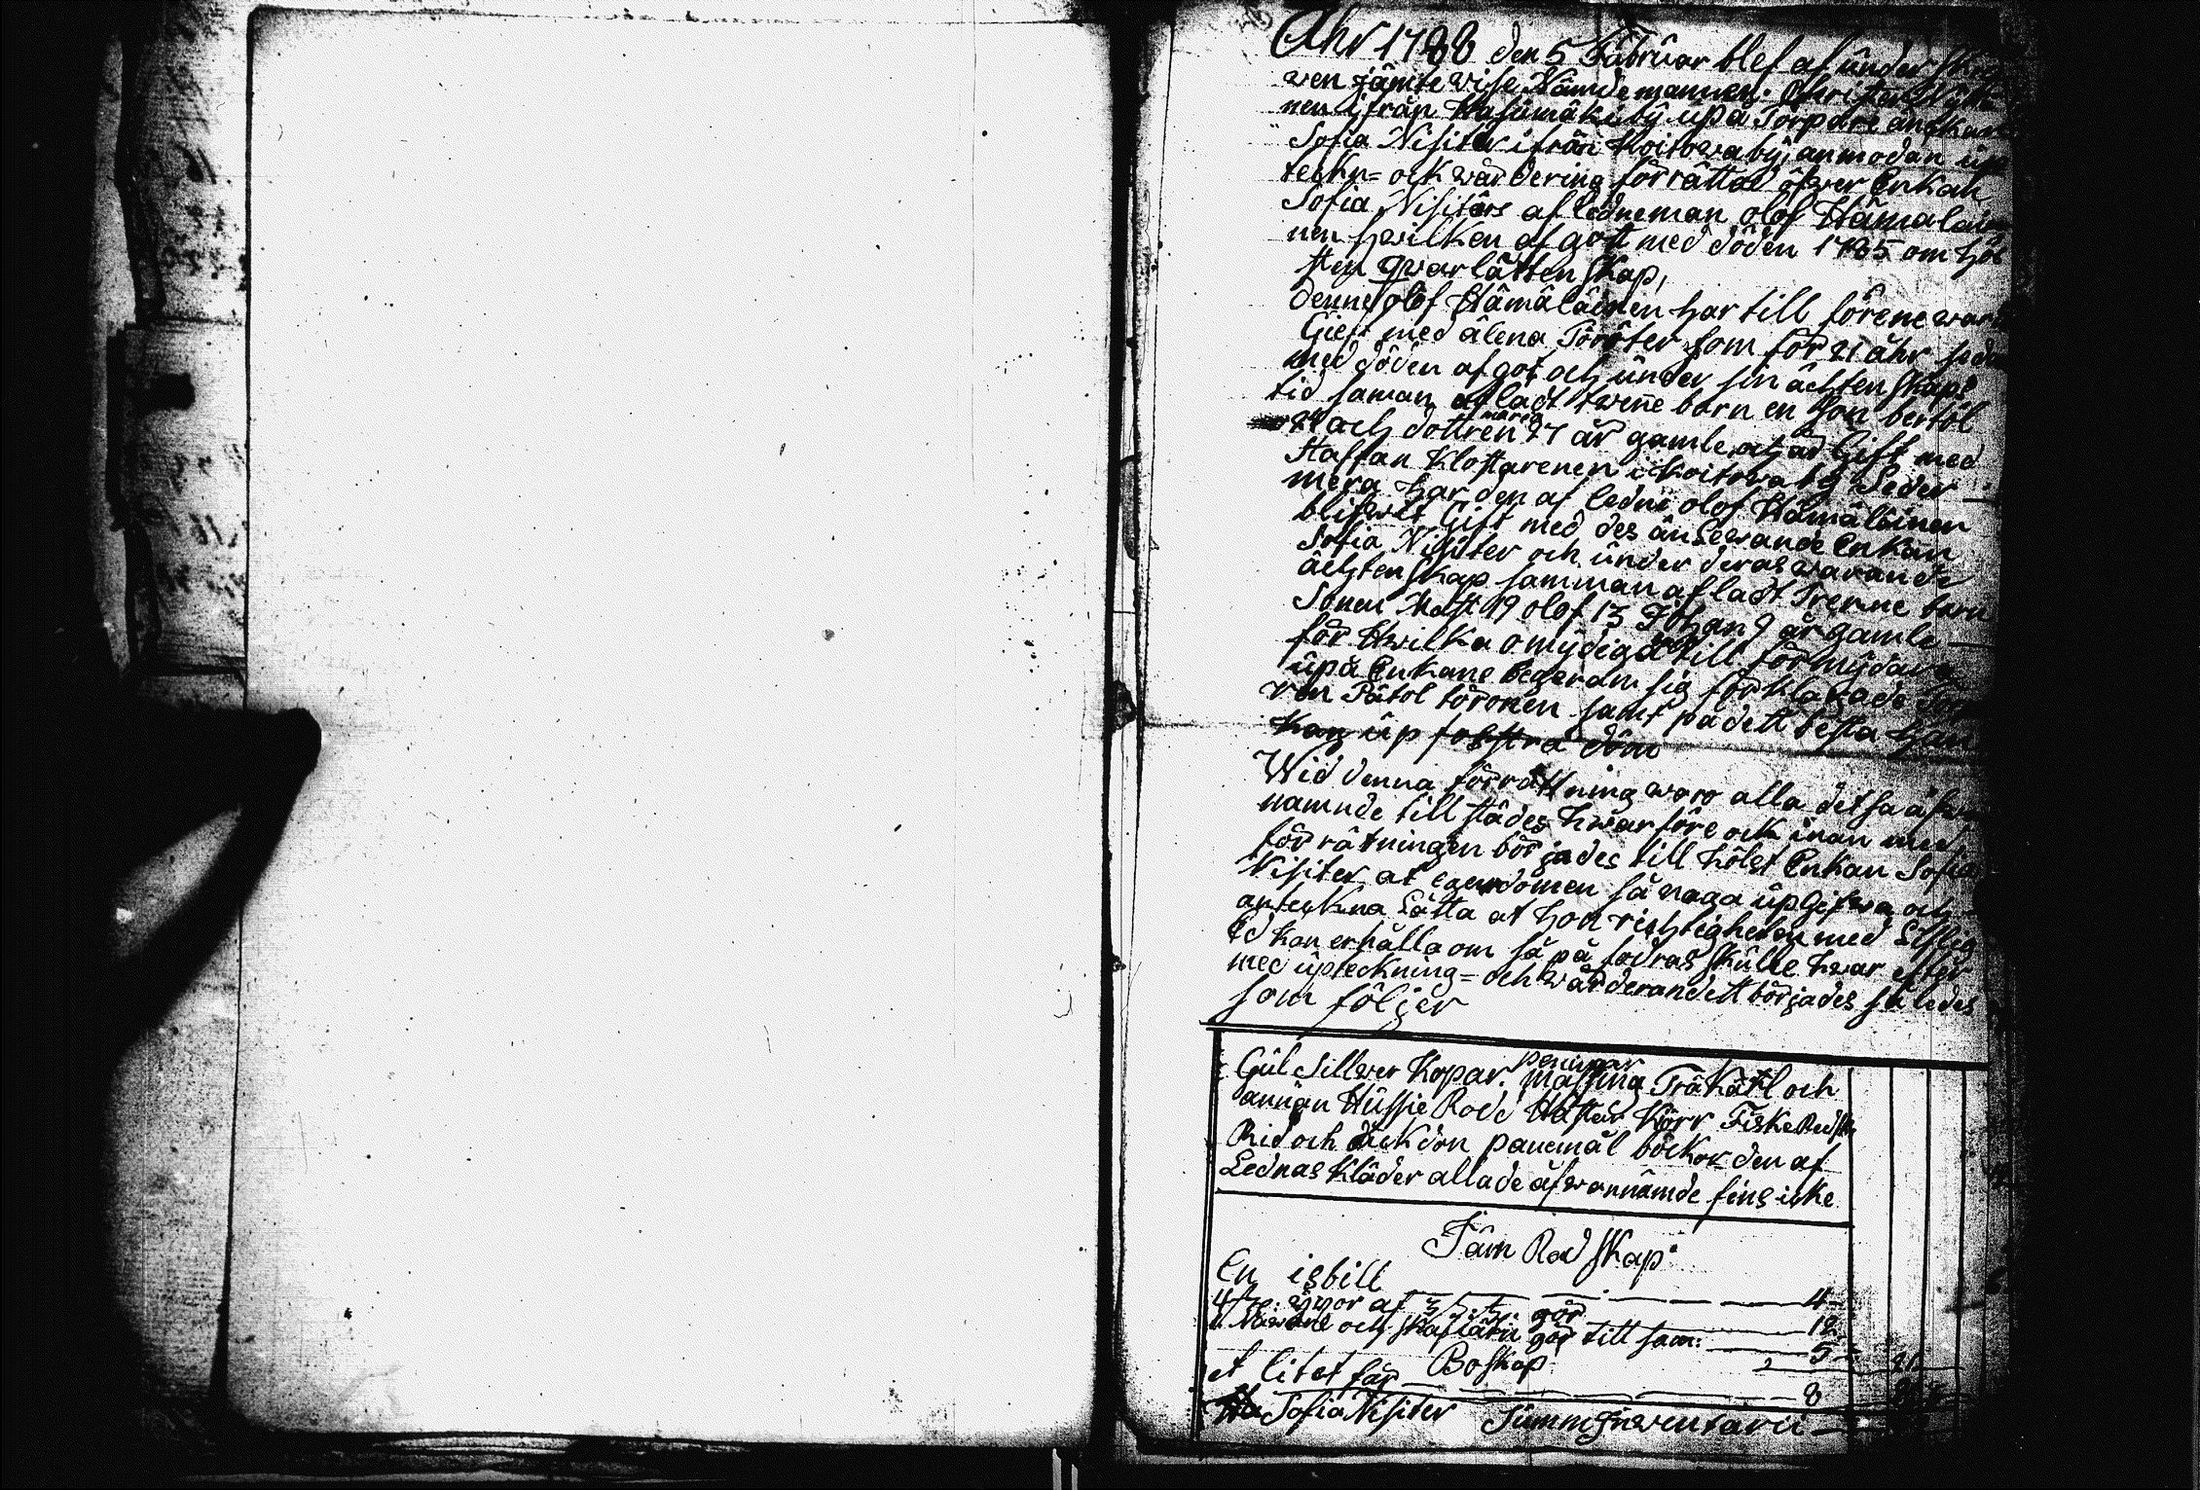 Åhr 1788 den 5 Fabruar blef af under
wen jämte wise Nämdemannen Christer
nen ifrån by upå Torpare änckan
Sofia Nisiter ifrån Koitowa by, anmodan up
teckn= ock wärdering förrättad öfwer Enkan
Sofia Nisiters afledne man olof Hämaläi
nen hwilken afgott med döden 1785 om hös
sten qwarlåttenskap,
denne olof Hämäläinen har till förene warit
Gieft med älena Töröter som för 21 åhr seda
med döden afgot och under sin ächtenskaps
tid saman aflaat twene barn en Son bertil
24 och dottren maria 27 år gamle och är Gift med
Staffan Klostarenen i Koitowa by Seder
mera har den afledne olof Hämäläinen
blifwit Gift med des änLewande Enkan
Sofia Nisiter och under deras warande
ächtenskap samman aflaat Trenne barn
Sonen Matt 19 olof 13 Johan 9 år gamle
för Hwilka omydiga till förmydare
upå Enkans begeran sig förklarade
ren Påtol töronen samt på dett besta
kan up fosstra döm
Wid denna förrättning woro alla detsa åfwan
namnde till städes hwarföre ock inan med
förrätningen börjades till hölst Enkan Sofia
Nisiter at egendomen så noga upGifwa och
anteckna Låtta at hon richtigheten med Liflig
Ed kan erhålla om så på fodras skulle hwar efter
med upteckning= och wärderandett börjades således
som följer
Gul Sillwer Kopar. peningar Massing Träkätl och
annan Hussie Rodd Hästar Körr FiskeRedsk
Rid och åckdon panemål böckor den af
Lednas Kläder allade åfwannämde fins icke
Järn Rodskap
En isbill 4
yxor af gör 12
och skaslätu gör till sam: 5
Boskap 2 21
et litet får 8
Sofia Nisiter Summ Inwentarii